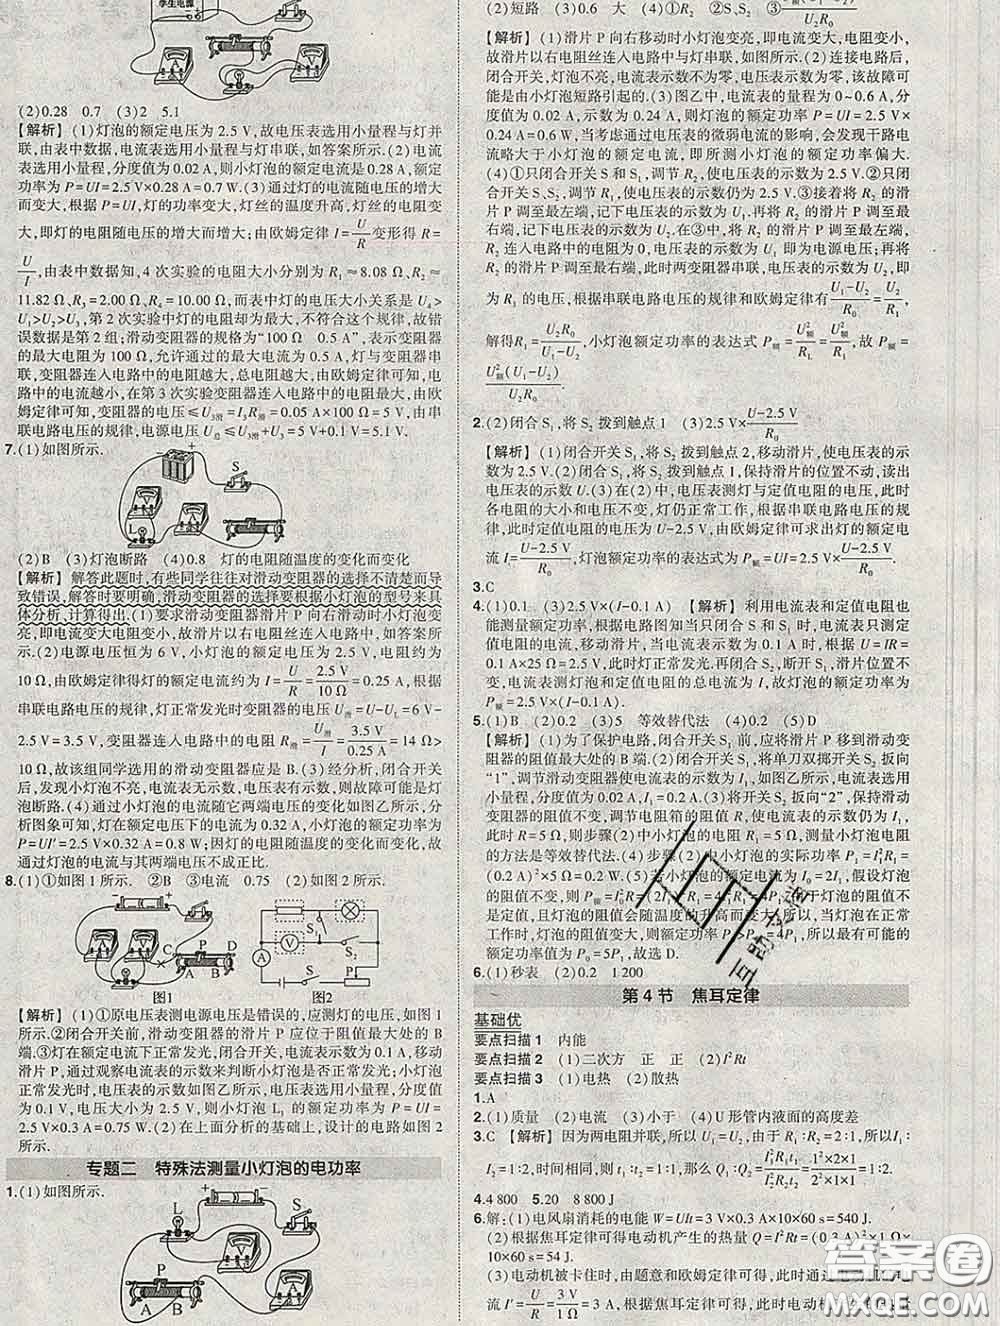 学生电源
(2)0.28 0.7 (3)2 5.1
【解析】 (1)灯泡的额定电压为 2.5 V,故电压表选用小量程与灯并
联,由表中数据,电流表选用小量程与灯串联,如答案所示.(2)电流
表选用小量程,分度值为 0.02 A,则小灯泡的额定电流是 0.28 A,额定
功率为 P=UI=2.5 V×0.28 A=0.7 W.(3)通过灯的电流随电压的增大
而变大,根据 P=UI,灯的功率变大,灯丝的温度升高,灯丝的电阻变
大,即灯的电阻随电压的增大而增大;由欧姆定律 I=U/R变形得 R=
U/I,由表中数据知,4 次实验的电阻大小分别为 R₁=8.08 Ω、R₂=
11.82 Ω、R₃=2.00 Ω、R₄=10.00 Ω,而表中灯的电压大小关系是 U₄>
U₁>U₂>U₃,第 2 次实验中灯的电阻却为最大,不符合这个规律,故错
误数据是第 2 组;滑动变阻器的规格为“100 Ω 0.5 A”,表示变阻器
的最大电阻为 100 Ω,允许通过的最大电流为 0.5 A,灯与变阻器串
联,变阻器连入电路中的电阻越大,总电阻越大,由欧姆定律可知,电
路中的电流越小,在第 3 次实验变阻器连入电路中的电阻最大,由欧
姆定律可知,变阻器的电压≤U₃滑=I₃R滑=0.05 A×100 Ω=5 V,由串
联电路电压的规律,电源电压 U总≤U₃滑+U₃=5 V+0.1 V=5.1 V.
7.(1)如图所示.
S
L P
(2)B (3)灯泡断路 (4)0.8 灯的电阻随温度的变化而变化
【解析】 解答此题时,有些同学往往对滑动变阻器的选择不清楚而导
致错误,解答时要明确,滑动变阻器的选择要根据小灯泡的型号来具
体分析、计算得出.(1)要求滑动变阻器滑片 P 向右滑动时小灯泡变
亮,即电流变大电阻变小,故滑片以右电阻丝连入电路中,如答案所
示.(2)电源电压恒为 6 V,小灯泡的额定电压为 2.5 V,电阻大约为
10 Ω,由欧姆定律得灯的额定电流约为 I=U/R=2.5 V/10 Ω=0.25 A,根据
串联电路电压的规律,灯正常发光时变阻器的电压 U滑=U-UL=6 V-
2.5 V=3.5 V,变阻器连入电路中的电阻 R滑=3.5 V/0.25 A=14 Ω>
10 Ω,故该组同学选用的滑动变阻器应是 B.(3)经分析,闭合开关后,
发现小灯泡不亮,电流表无示数,电压表有示数,则故障可能是灯
泡断路.(4)通过小灯泡的电流随它两端电压的变化如图乙所示,分
析图象可知,灯在额定电压下的电流为 0.32 A,小灯泡的额定功率
P=UI′=2.5 V×0.32 A=0.8 W;因灯的电阻随温度的变化而变化,故
通过灯泡的电流与其两端电压不成正比.
8.(1)①如图 1 所示. ②B ③电流 0.75 (2)如图 2 所示.
P D
A B
图1
V
A S₁
S₂
S
图2
【解析】 (1)①原电压表测电源电压是错误的,应测灯的电压,如图 1
所示.②闭合开关前,滑动变阻器的滑片 P 应位于阻值最大处的 B
端.③灯在额定电流下正常发光,闭合开关,电流表示数为 0.1 A,移动
滑片 P,通过观察电流表的示数来判断小灯泡是否正常发光.小灯泡
正常发光时,电压表的示数如图乙所示,电压表选用小量程,分度值
为 0.1 V,电压大小为 2.5 V,则小灯泡 L₁ 的额定功率为 P=UI=
2.5 V×0.3 A=0.75 W.(2)在上面分析的基础上,设计的电路如图 2
所示.
专题二 特殊法测量小灯泡的电功率
1.(1)如图所示.
L S
P
A B
(2)短路 (3)0.6 大 (4)①R₂ ②S、S₂
【解析】 (1)滑片 P 向右移动时小灯泡变亮,即电流变大,电阻变小,
故滑片以右电阻丝连入电路中与灯串联,如图所示.(2)连接电路后,
闭合开关,灯泡不亮,电流表示数不为零,电压表示数为零,该故障可
能是由小灯泡短路引起的.(3)图乙中,电流表的量程为 0~0.6 A,分
度值为 0.02 A,示数为 0.24 A,则灯泡的额定功率为 P=UI=2.5 V×
0.24 A=0.6 W,当考虑通过电压表的微弱电流的影响,会发现干路电
流略大于小灯泡的额定电流,即所测小灯泡的额定功率偏大.
(4)①只闭合开关 S 和 S₁,调节 R₂,使电压表的示数为 2.5 V.②只闭
合开关 S、S₂,调节 R₁,使电压表的示数仍为 2.5 V.③接着将 R₂ 的滑
片 P 调至最左端,记下电压表的示数为 U₁.再将 R₂ 的滑片 P 调至最
右端,记下电压表的示数为 U₂.在③中,将 R₂ 的滑片 P 调至最左端,
R₂ 连入电路中的电阻为 0,电压表的示数为 U₁ 即为电源电压;再将
R₂ 的滑片 P 调至最右端,此时两变阻器串联,电压表的示数为 U₂,即
为 R₁ 的电压,根据串联电路电压的规律和欧姆定律有
解得R₁=U₂R₀/(U₁-U₂),小灯泡额定功率的表达式 P额=U额²/RL=U额²/R₁,故 P额=
U额²(U₁-U₂)/U₂R₀.
2.(2)闭合 S₁,将 S₂ 拨到触点 1 (3)2.5 V×(U-2.5 V)/R₀
【解析】 (1)闭合开关 S₁,将 S₂ 拨到触点 2,移动滑片,使电压表的示
数为 2.5 V.(2)闭合 S₁,将 S₂ 拨到触点 1,保持滑片的位置不动,读出
电压表的示数为 U.(3)在(2)中,电压表测灯与定值电阻的电压,此时
各电阻的大小和电压不变,灯仍正常工作,根据串联电路电压的规
律,此时定值电阻的电压为 U-2.5 V,由欧姆定律可求出灯的额定电
流 I=(U-2.5 V)/R₀,灯泡额定功率的表达式为 P额=UI=2.5 V×(U-2.5 V)/R₀.
3.C
4.(1)0.1 (3)2.5 V×(I-0.1 A) 【解析】 利用电流表和定值电阻也
能测量额定功率,根据电路图知当只闭合 S 和 S₁ 时,电流表只测定
值电阻的电流,移动滑片,当电流表示数为 0.1 A 时,根据 U=IR=
0.1 A×25 Ω=2.5 V,此时灯正常发光.再闭合 S₂,断开 S₁,滑片不动,
灯正常发光,电流表测灯泡和定值电阻的总电流,故灯泡的额定功率为
P额=2.5 V×(I-0.1 A).
5.(1)B (2)0.2 (3)5 等效替代法 (4)0.2 (5)D
【解析】 (1)为了保护电路,闭合开关 S₁ 前,应将滑片 P 移到滑动变
阻器的阻值最大处的 B 端.(2)闭合开关 S₁,将单刀双掷开关 S₂ 扳向
“1”,调节滑动变阻器使电流表的示数为 I₁,如图乙所示,电流表选用
小量程,分度值为 0.02 A,I₁=0.2 A.(3)将开关 S₂ 扳向“2”,保持滑动
变阻器的阻值不变,调节电阻箱的阻值 R,使电流表的示数仍为 I₁,
此时 R=5 Ω,则步骤(2)中小灯泡的电阻 R₁=5 Ω,测量小灯泡电阻
的方法是等效替代法.(4)步骤(2)中小灯泡的实际功率 P₁=I₁²R₁=
(0.2 A)²×5 Ω=0.2 W.(5)若小灯泡的额定电流为 2I₁,假设灯泡
的阻值不变,则 P额=I额²R=(2I₁)²R₁=4I₁²R₁=4P₁,而小灯泡的阻值不
是定值,且灯泡的阻值会随温度的升高而变大,所以小灯泡在正常
工作时,灯泡的阻值变大,则额定功率 P额>P₀=4P₁,所以最有可能的
额定功率值为 P₀=5P₁,故选 D.
6.(1)秒表 (2)0.2 1 200
第 4 节 焦耳定律
基础优
要点扫描 1 内能
要点扫描 2 (1)二次方 正 正 (2)I²Rt
要点扫描 3 (1)电热 (2)散热
1.A
2.(1)质量 (2)电流 (3)小于 (4)U 形管内液面的高度差
3.C 【解析】 因为两电阻并联,所以 U₁=U₂,由于 R₁∶R₂=2∶1,所以
I₁∶I₂=1∶2,工作相同时间,则 t₁∶t₂=1∶1,Q₁∶Q₂=I₁²R₁t₁/I₂²R₂t₂=1²×2×1/2²×1×1=1∶2.
4.4 800 5.20 8 800 J
6.解:(1)电风扇消耗的电能 W=UIt=3 V×0.3 A×10×60 s=540 J.
(2)根据焦耳定律可得电动机产生的热量 Q=I²Rt=(0.3 A)²×1 Ω×
10×60 s=54 J.
(3)电动机被卡住时,由题意和欧姆定律可得,此时电动机
流 I′=U/R=3 V/1 Ω=3 A,根据焦耳定律可得,此时电动
答案圈
MXQE.COM